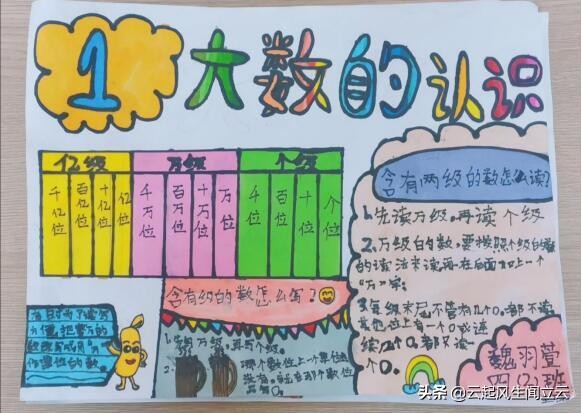 1 大数的认识
亿级 万级 个级
千亿位 百亿位 十亿位 亿位 千万位 百万位 十万位 万位 千位 百位 十位 个位
含有两级的数怎么读?
1.先读万级,再读个级
2.万级的数,要按照个级的数
的读法来读,再在后面加上一个
"万"字。
3.每级末尾不管有几个0,都不读,
其他位上有一个0或连
续几个0,都只读一
个0。
含有级的数怎么写?
1.先写万级,再写个级。
2.哪个数位上一个单位也
没有,就在那个数位
有时为了读写
方便,把整万的
作单位的数
魏羽萱
四(2)班
头条 @云起风生闻立云